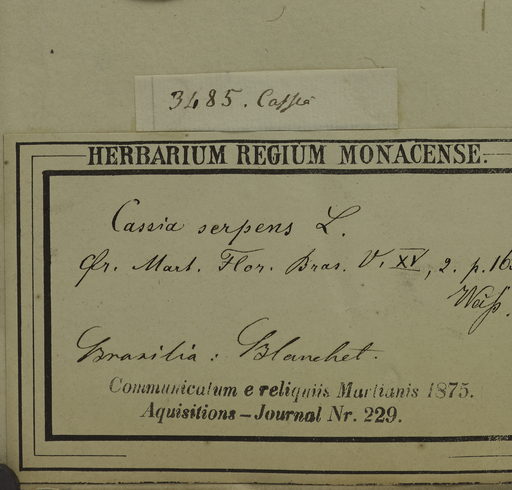 3485. Cassia
HERBARIUM REGIUM MONACENSE.
Cassia serpens L.
Cfr. Mart. Flor. Bras. V. XV, 2. p. 16
Brasilia: Blanchet.
Communicatum e reliquiis Martianis 1875.
Aquisitions-Journal Nr. 229.